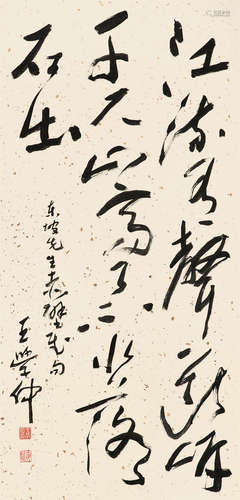 江流有聲断岸
千尺山高月小水落
石出
东坡先生赤壁賦句
王學仲